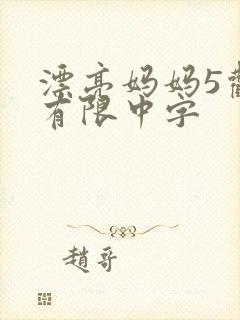 漂亮妈妈5
有限中字
趙哥